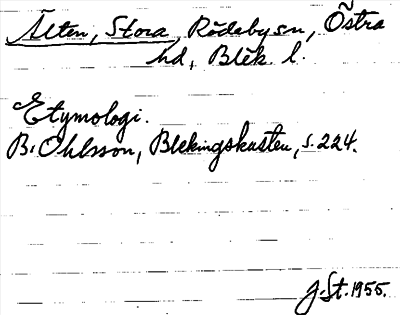 Älten, Stora, Rödebysn, Östra
hd, Blek. l.
Etymologi.
B. Ohlsson, Blekingskusten, s. 224.
J. St. 1955.